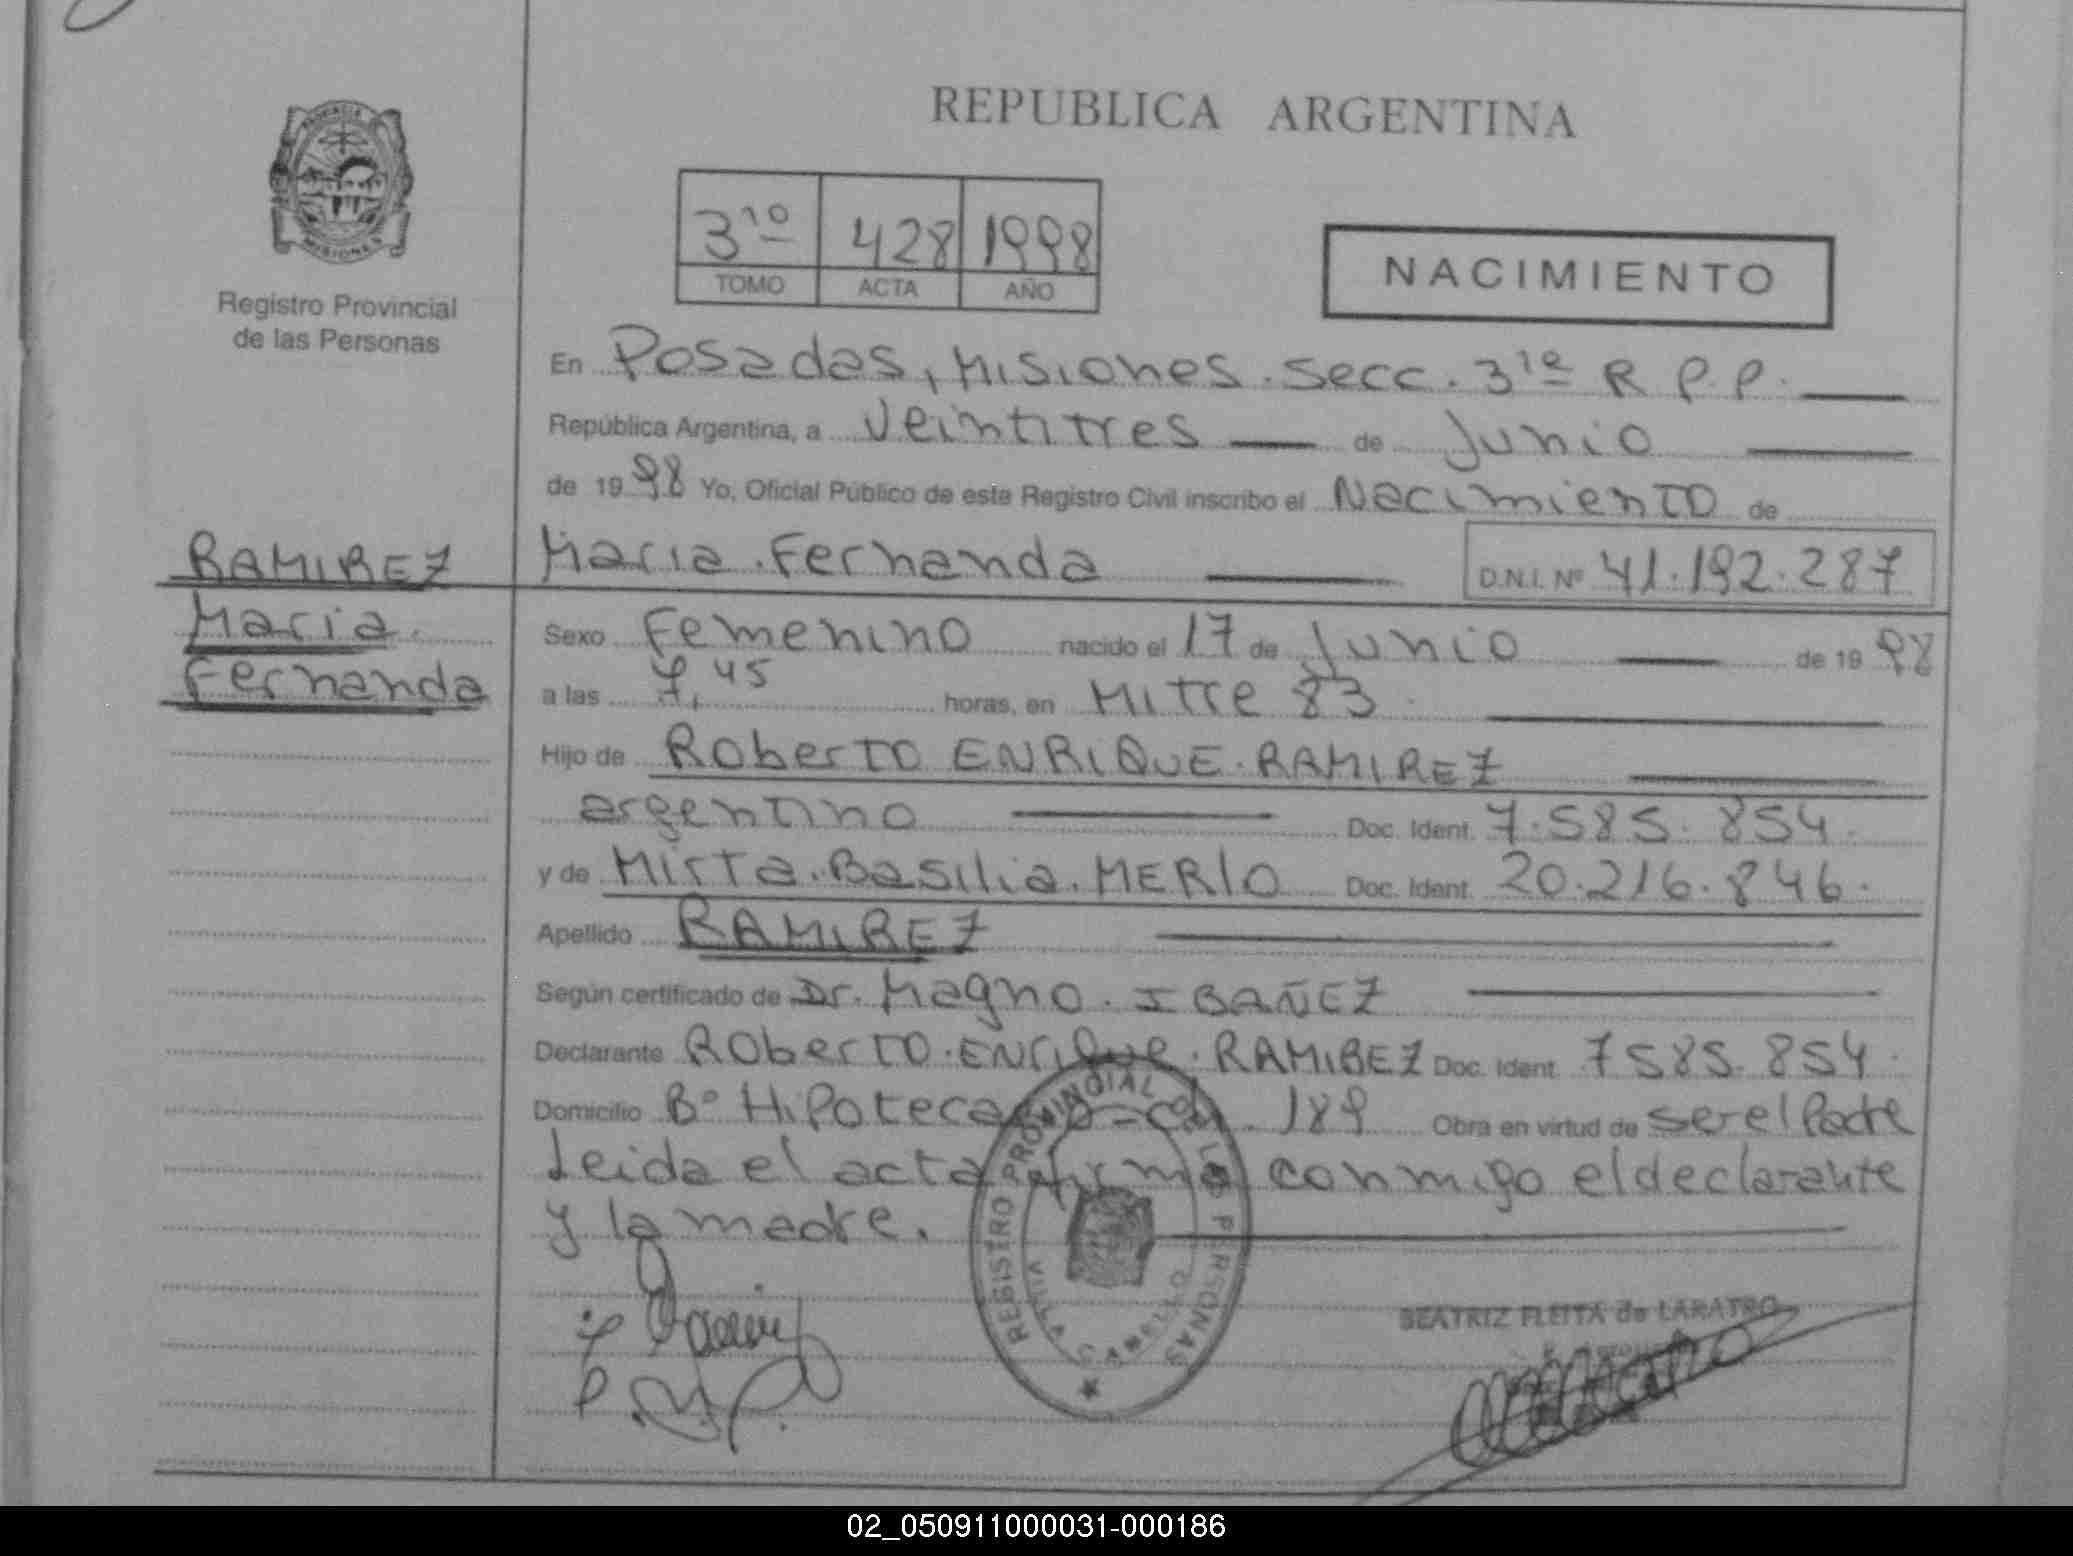 REPUBLICA ARGENTINA
PROVINCIA
MISIONES
Registro Provincial
de las Personas
3ro 428 1998
TOMO ACTA AÑO
NACIMIENTO
En Posadas, Misiones. Secc. 3ra R P.P.
República Argentina, a Veintitres de Junio
de 1998 Yo, Oficial Público de este Registro Civil inscribo el Nacimiento de
RAMIREZ
Maria.
Fernanda
Maria. Fernanda D.N.I. Nº 41.192.287
Sexo Femenino nacido el 17 de Junio de 1998
a las 45 horas, en Mitre 83.
Hijo de Roberto ENRIQUE. RAMIREZ
argentino Doc. Ident. 7.585.854.
y de Mirta. Basilia. MERLO Doc. Ident. 20.216.846.
Apellido RAMIREZ
Según certificado de Dr. Magno. IBAÑEZ
Declarante Roberto. ENRIQUE. RAMIREZ Doc. Ident. 7585.854.
Domicilio Bº Hipotecario - CH. 189 Obra en virtud de ser el Padre
Leida el acta firma conmigo el declarante
y la madre.
REGISTRO PROVINCIAL DE LAS PERSONAS
VILLA CABELLO
BEATRIZ FLEITA de LARATRO
02_050911000031-000186